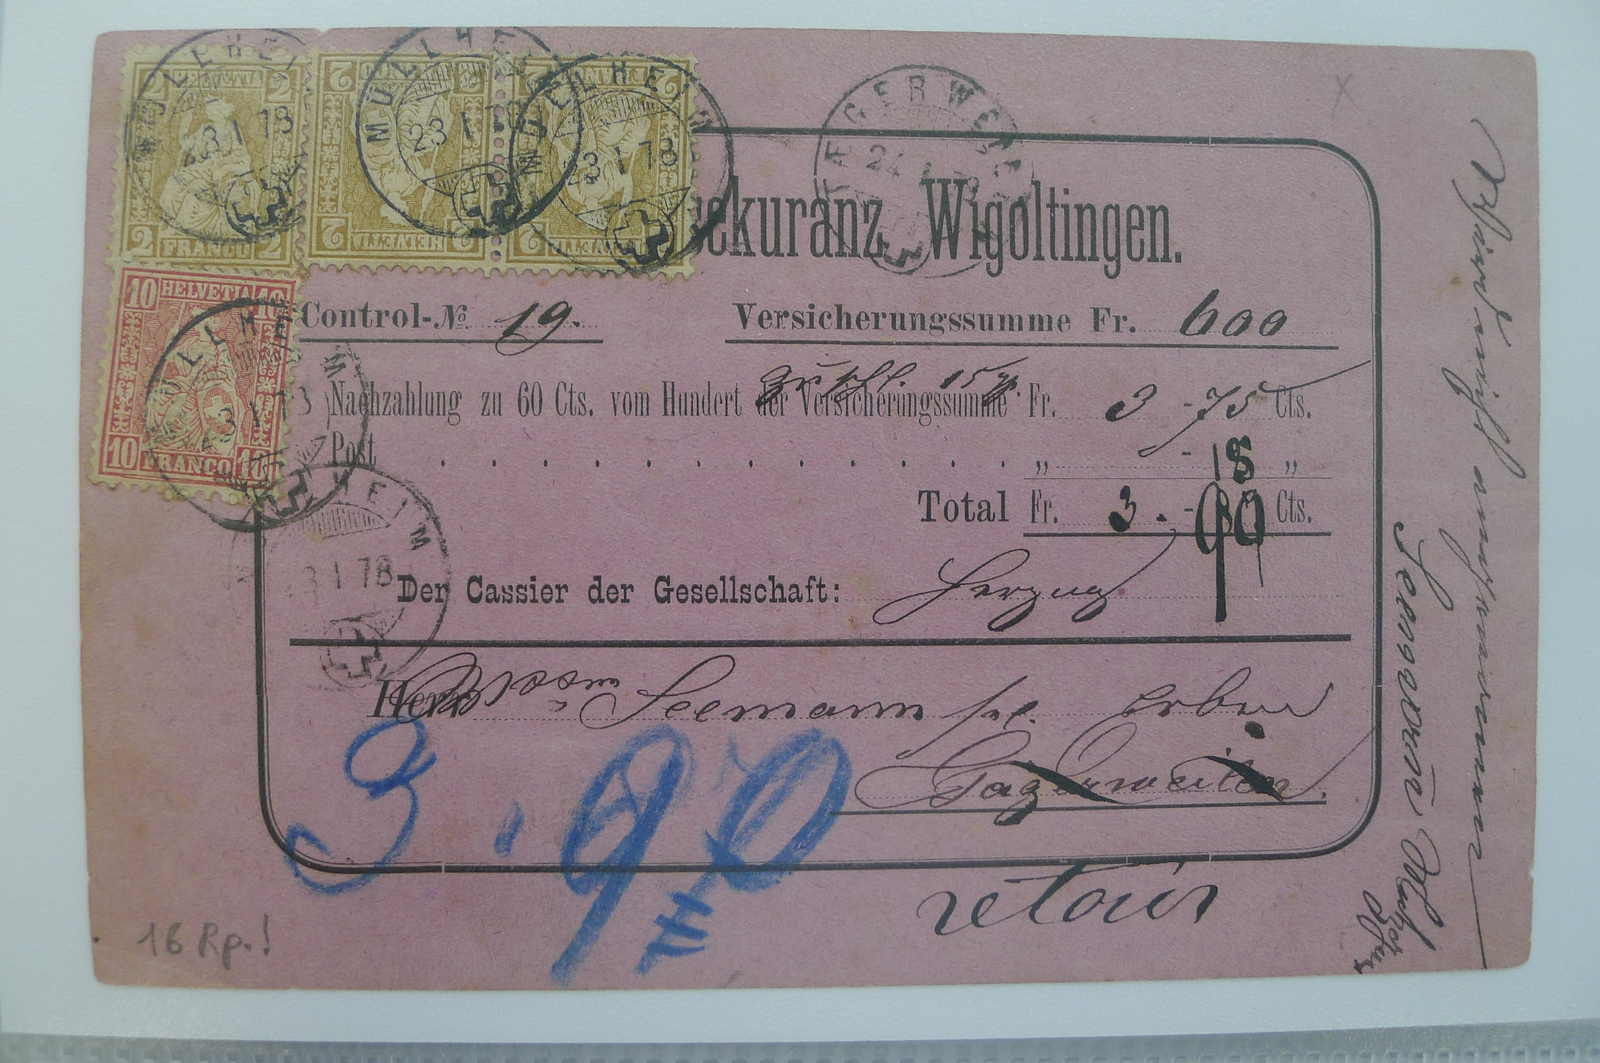 HELVETIA
2 2
2 FRANCO 2
HELVETIA
10 HELVETIA 10
10 FRANCO 10
MÜLLHEIM
23 I 78
MÜLLHEIM
23 I 78
MÜLLHEIM
23 I 78
MÜLLHEIM
23 I 78
MÜLLHEIM
23 I 78
TÆGERWEILEN
24
ekuranz Wigoltingen.
Control-No. 19. Versicherungssumme Fr. 600
15
Nachzahlung zu 60 Cts. vom Hundert der Versicherungssumme Fr. 3 - 75 Cts.
Post „ - 15 „
Total Fr. 3. - 90 Cts.
Der Cassier der Gesellschaft: Herzog
Herrn Seemann sel. Erben
Tägerweilen.
3.90
retour
16 Rp.!
Wird nicht angenommen